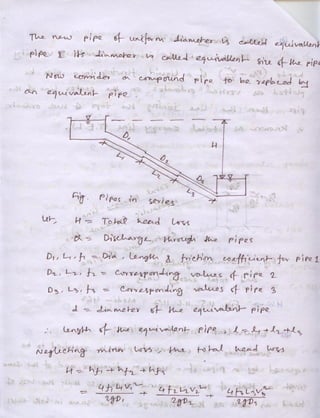 The new pipe of uniform diameter is called equivalent
pipe & its diameter is called equivalent size of the pipe
Now consider a compound pipe to be replaced by
an equivalent pipe.
H
D1
D2
D3
L1
L2
L3
Fig. Pipes in series
Let, H = Total head loss
Q = Discharge through the pipes
D1, L1, f1 = Dia, length & friction coefficient for pipe 1
D2, L2, f2 = Corresponding values of pipe 2
D3, L3, f3 = Corresponding values of pipe 3
d = diameter of the equivalent pipe
∴ length of the equivalent pipe, l = L1 + L2 + L3
Neglecting minor loss, the total head loss
H = hf1 + hf2 + hf3
= 4f1L1V1²/2gD1 + 4f2L2V2²/2gD2 + 4f3L3V3²/2gD3